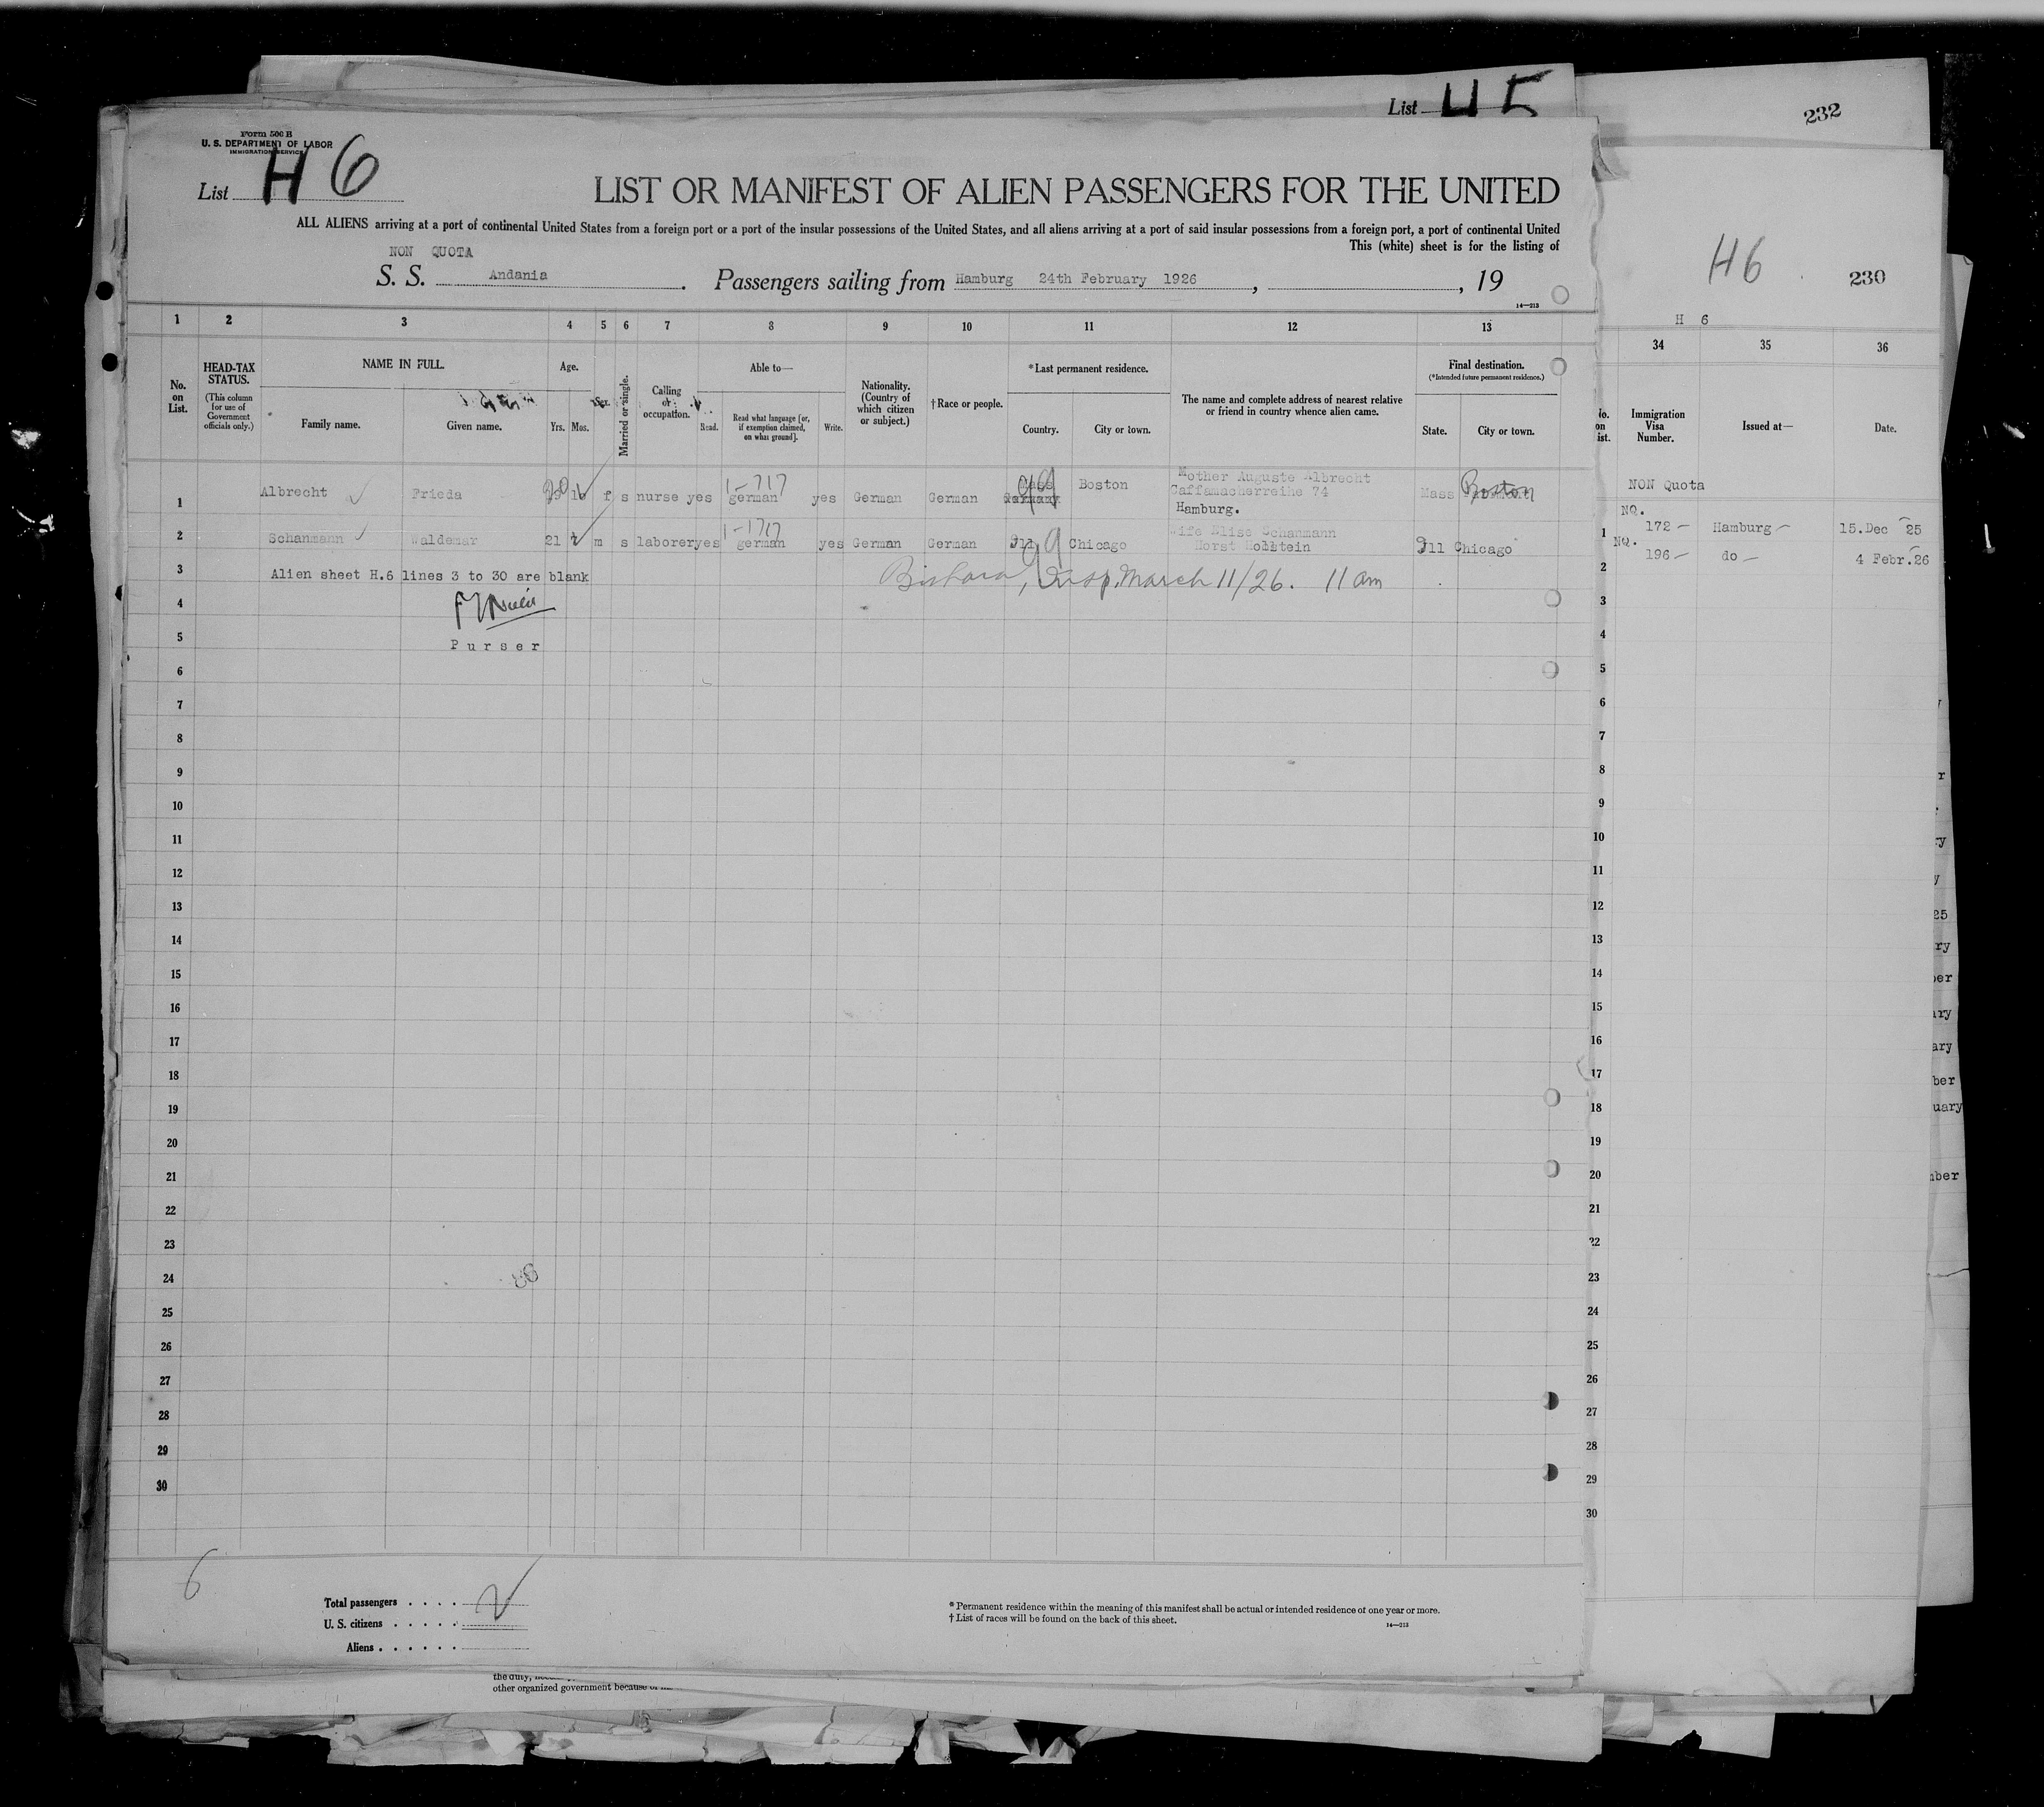 List H 5
232
Form 500 B
U. S. DEPARTMENT OF LABOR
IMMIGRATION SERVICE
List H 6
LIST OR MANIFEST OF ALIEN PASSENGERS FOR THE UNITED
ALL ALIENS arriving at a port of continental United States from a foreign port or a port of the insular possessions of the United States, and all aliens arriving at a port of said insular possessions from a foreign port, a port of continental United
This (white) sheet is for the listing of
NON QUOTA
S. S. Andania. Passengers sailing from Hamburg 24th February 1926, , 19
14—213
H6 230
H 6
1 2 3 4 5 6 7 8 9 10 11 12 13
34 35 36
No. on List.
HEAD-TAX STATUS.
(This column for use of Government officials only.)
NAME IN FULL.
Family name. Given name.
Age.
Yrs. Mos.
Sex.
Married or single.
Calling or occupation.
Able to—
Read. Read what language [or, if exemption claimed, on what ground]. Write.
Nationality. (Country of which citizen or subject.)
†Race or people.
*Last permanent residence.
Country. City or town.
The name and complete address of nearest relative or friend in country whence alien came.
Final destination.
(*Intended future permanent residence.)
State. City or town.
No. on List.
Immigration Visa Number.
Issued at—
Date.
NON Quota
1 Albrecht Frieda f s nurse yes german yes German German Mass Boston Mother Auguste Albrecht
Caffamacherreihe 74
Hamburg. Mass Boston
2 Schanmann Waldemar 21 m s laborer yes german yes German German Ill Chicago Wife Elise Schanmann
Horst Holstein Ill Chicago
1 NQ. 172 — Hamburg — 15.Dec 25
2 NQ. 196 — do — 4 Febr.26
3 Alien sheet H.6 lines 3 to 30 are blank
Insp. March 11/26. 11 am
4
5 Purser
6
7
8
9
10
11
12
13
14
15
16
17
18
19
20
21
22
23
24
25
26
27
28
29
30
3
4
5
6
7
8
9
10
11
12
13
14
15
16
17
18
19
20
21
22
23
24
25
26
27
28
29
30
6
Total passengers . . . .
U. S. citizens . . . . .
Aliens . . . . . .
* Permanent residence within the meaning of this manifest shall be actual or intended residence of one year or more.
† List of races will be found on the back of this sheet.
14—213
the duty,
other organized government because of